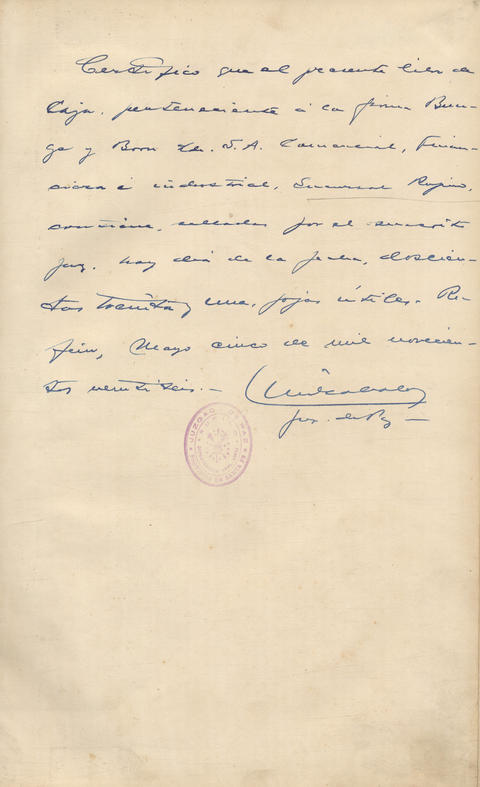 Certifico que el presente libro de
Caja, perteneciente á la firma Bun-
ge y Born Lda. S.A. Comercial, Finan-
ciera é industrial, Sucursal Rufino,
contiene, selladas por el suscrito
juez, hoy dia de la fecha, doscien-
tas treinta y una, fojas útiles. Ru-
fino, Mayo cinco de mil novecien-
tos veintiseis.—
juez de Paz —
JUZGADO DE PAZ
RUFINO
PROVINCIA DE SANTA FE